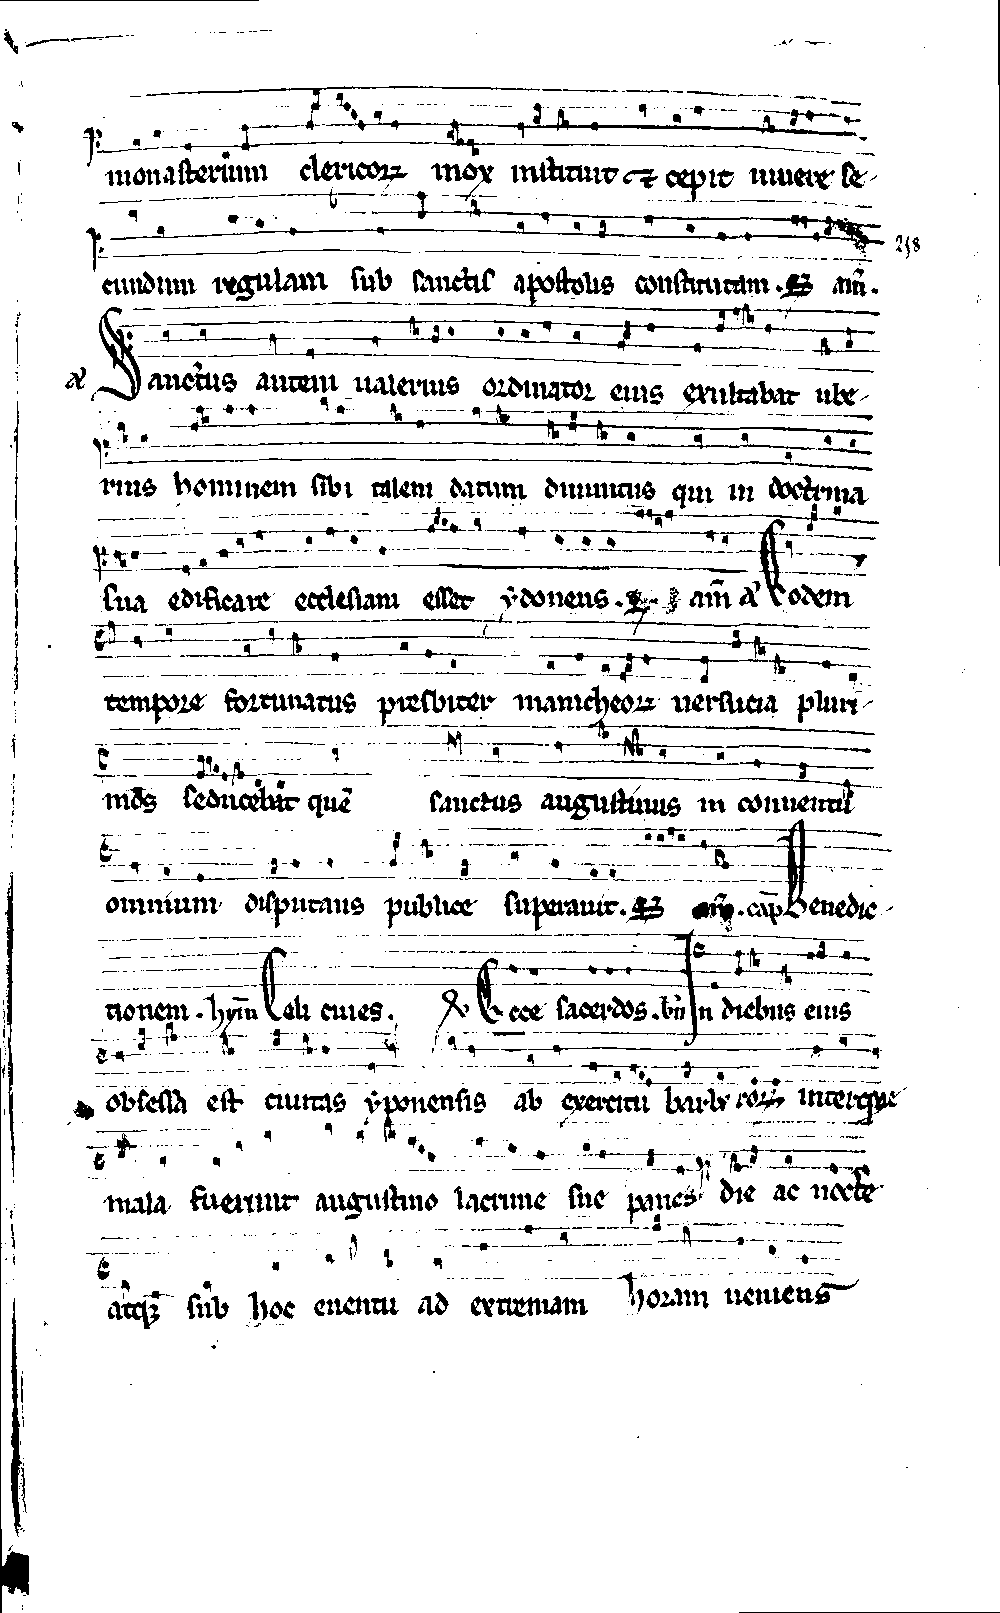 monasterium clericoꝝ mox instituit et cepit uiuere se-
258
cundum regulam sub sanctis apostolis constitutam. am̄.
a͞ Sanctus autem ualerius ordinator eius exultabat ube-
rius hominem sibi talem datum diuinitus qui in doctrina
sua edificare ecclesiam esset ẏdoneus. am̄ a͞ Eodem
tempore fortunatus presbiter manicheoꝝ uersucia pluri-
mos seducebat quē sanctus augustinus in conuentu
omnium disputans publice superauit. cap̄ Benedic-
tionem. hym̄ Celi ciues. ℟ Ecce sacerdos. bn̄ In diebus eius
obsessa est ciuitas ẏponensis ab exercitu barbaroꝝ interque
mala fuerunt augustino lacrime sue panes die ac nocte
atque sub hoc euentu ad extremam horam ueniens